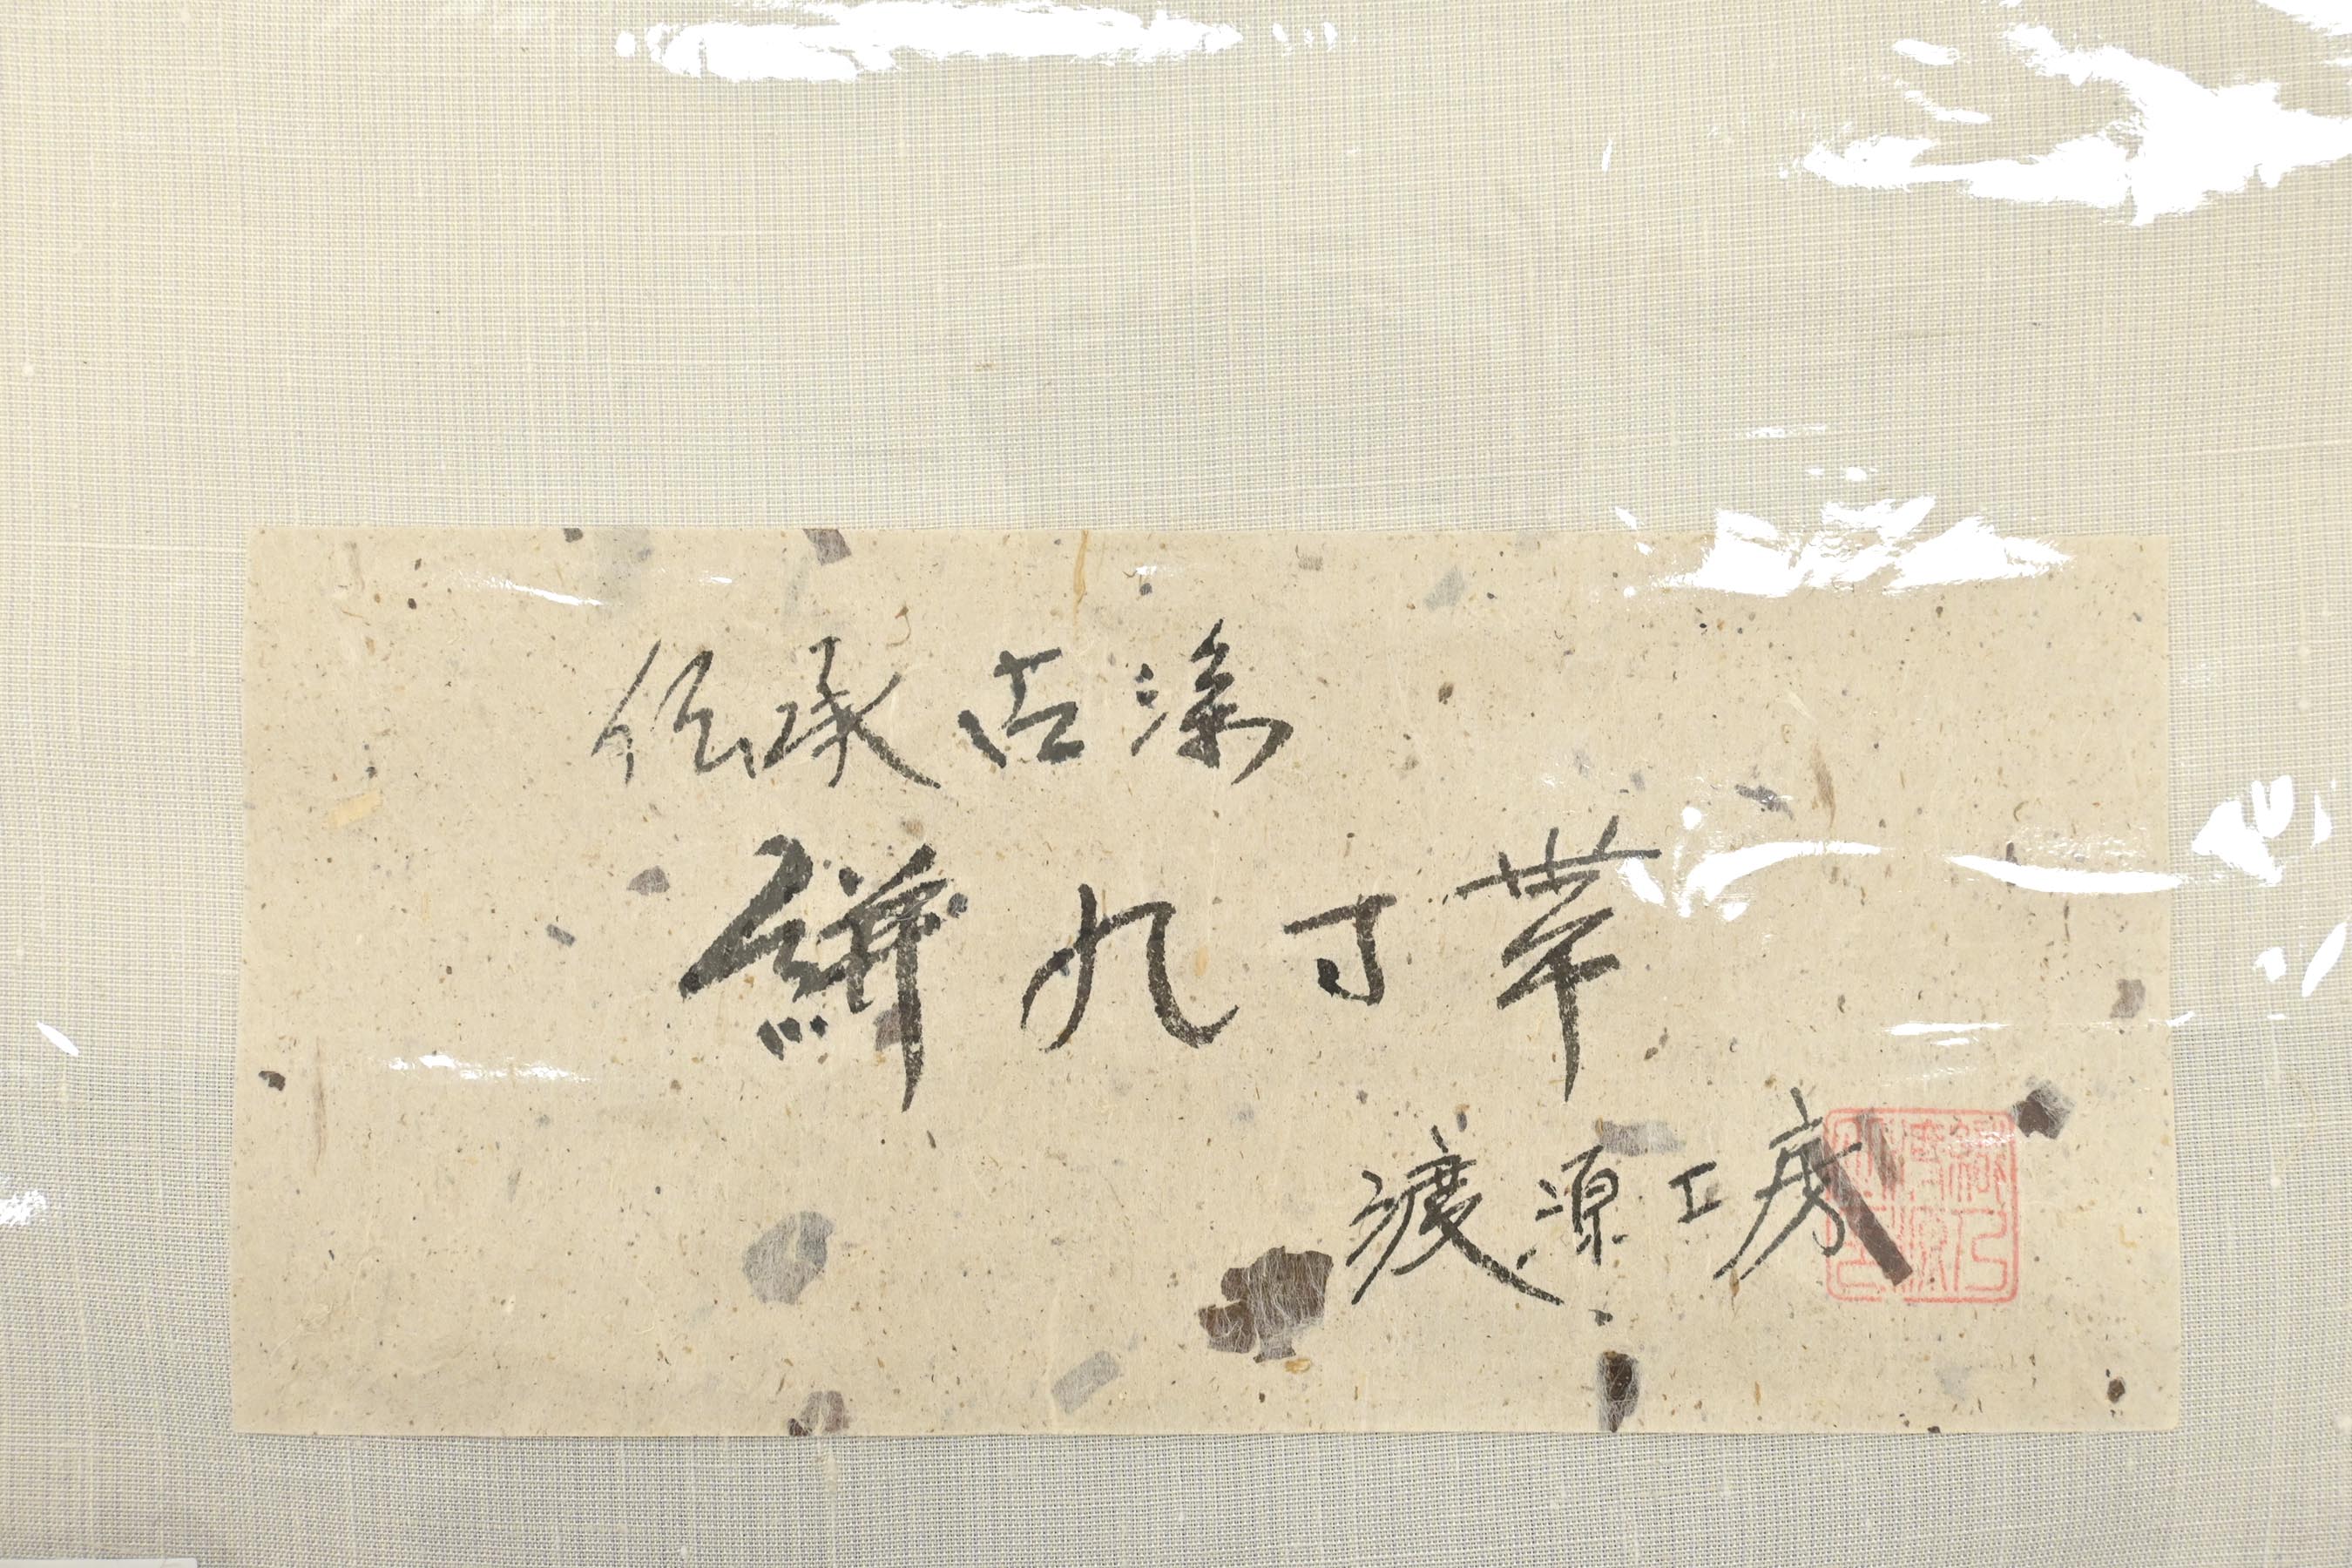 伝承古染
絣九寸帯
渡源工房